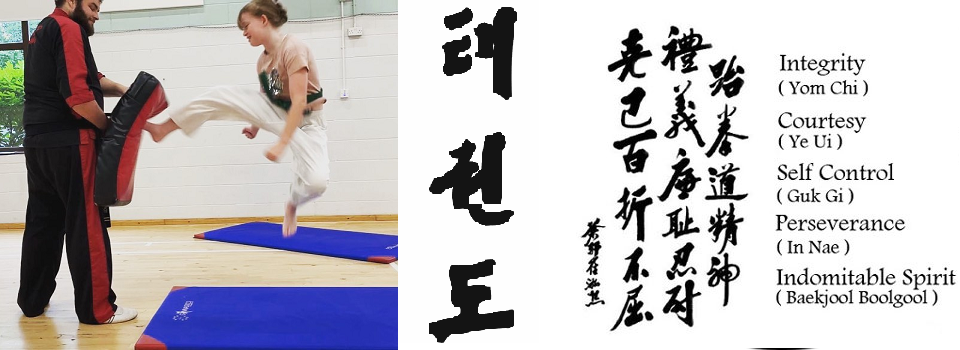 태권도
跆拳道精神
禮義廉耻忍耐
克己百折不屈
Integrity
( Yom Chi )
Courtesy
( Ye Ui )
Self Control
( Guk Gi )
Perseverance
( In Nae )
Indomitable Spirit
( Baekjool Boolgool )